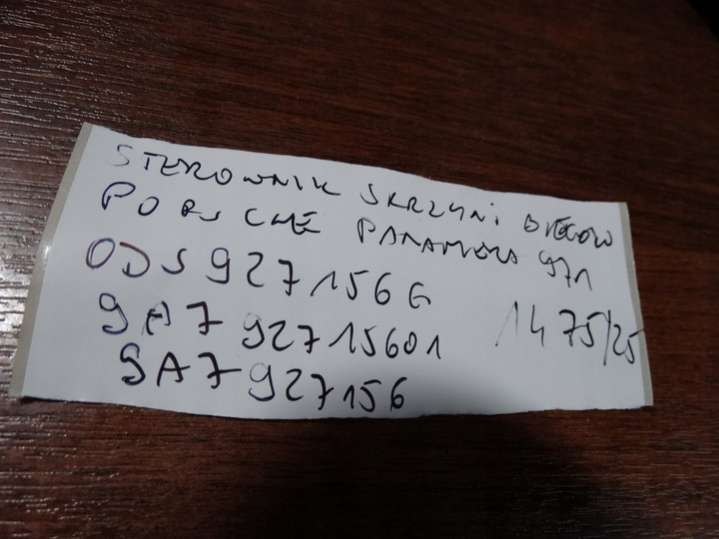 STEROWNIK SKRZYNI BIEGÓW
PORSCHE PANAMERA 971
0DS927156G
9A792715601 1475/25
9A7927156